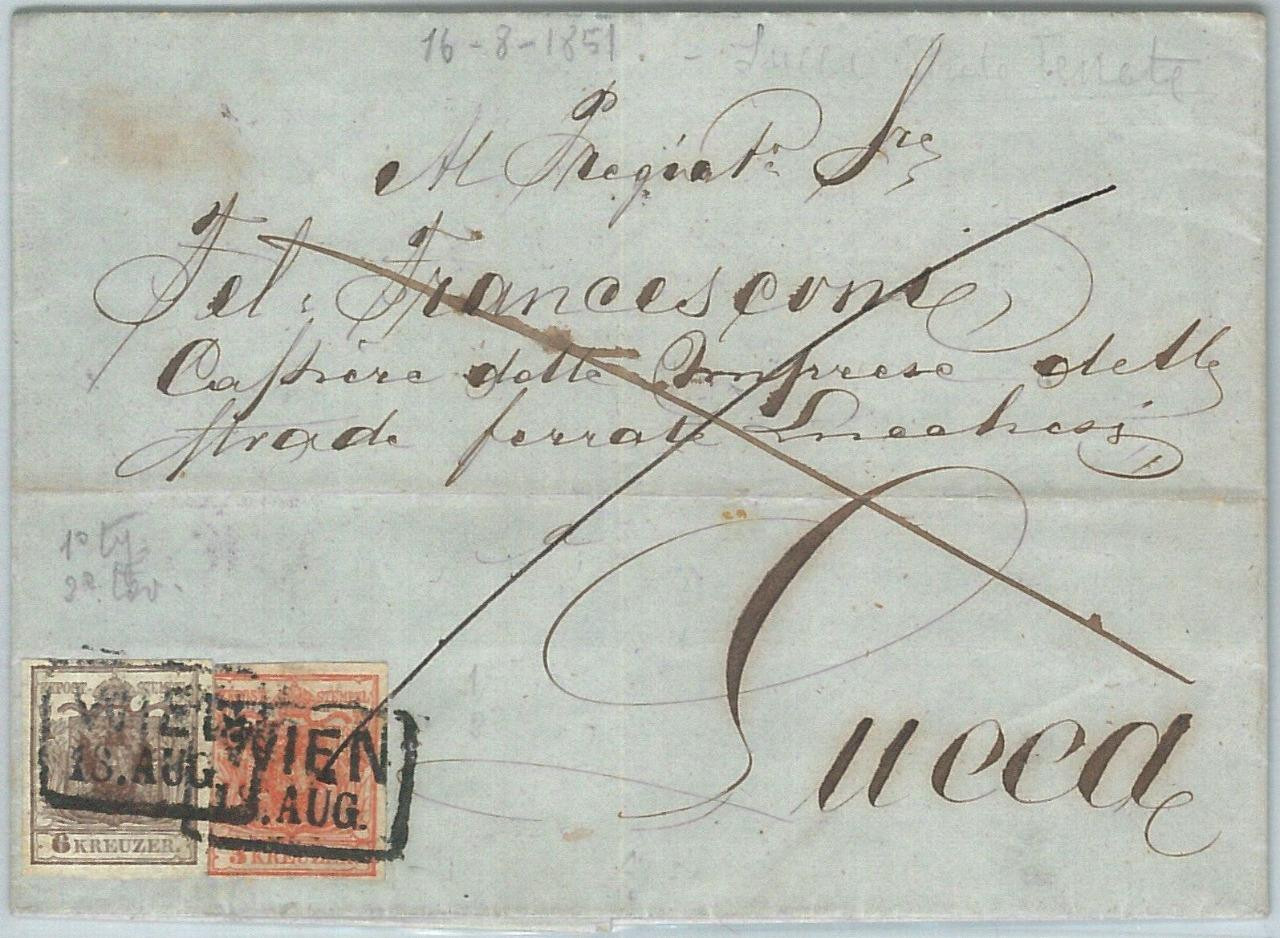 16-8-1851. - Lucca Strade Ferrate
Al Pregiatᵒ Sre
Fel. Francesconi
Cassiere delle Imprese delle
Strade ferrate Lucchesi
Lucca
1º
2ª
POST STEMPEL
6 KREUZER.
WIEN
18. AUG.
STEMPEL
3 KREUZER
WIEN
18. AUG.